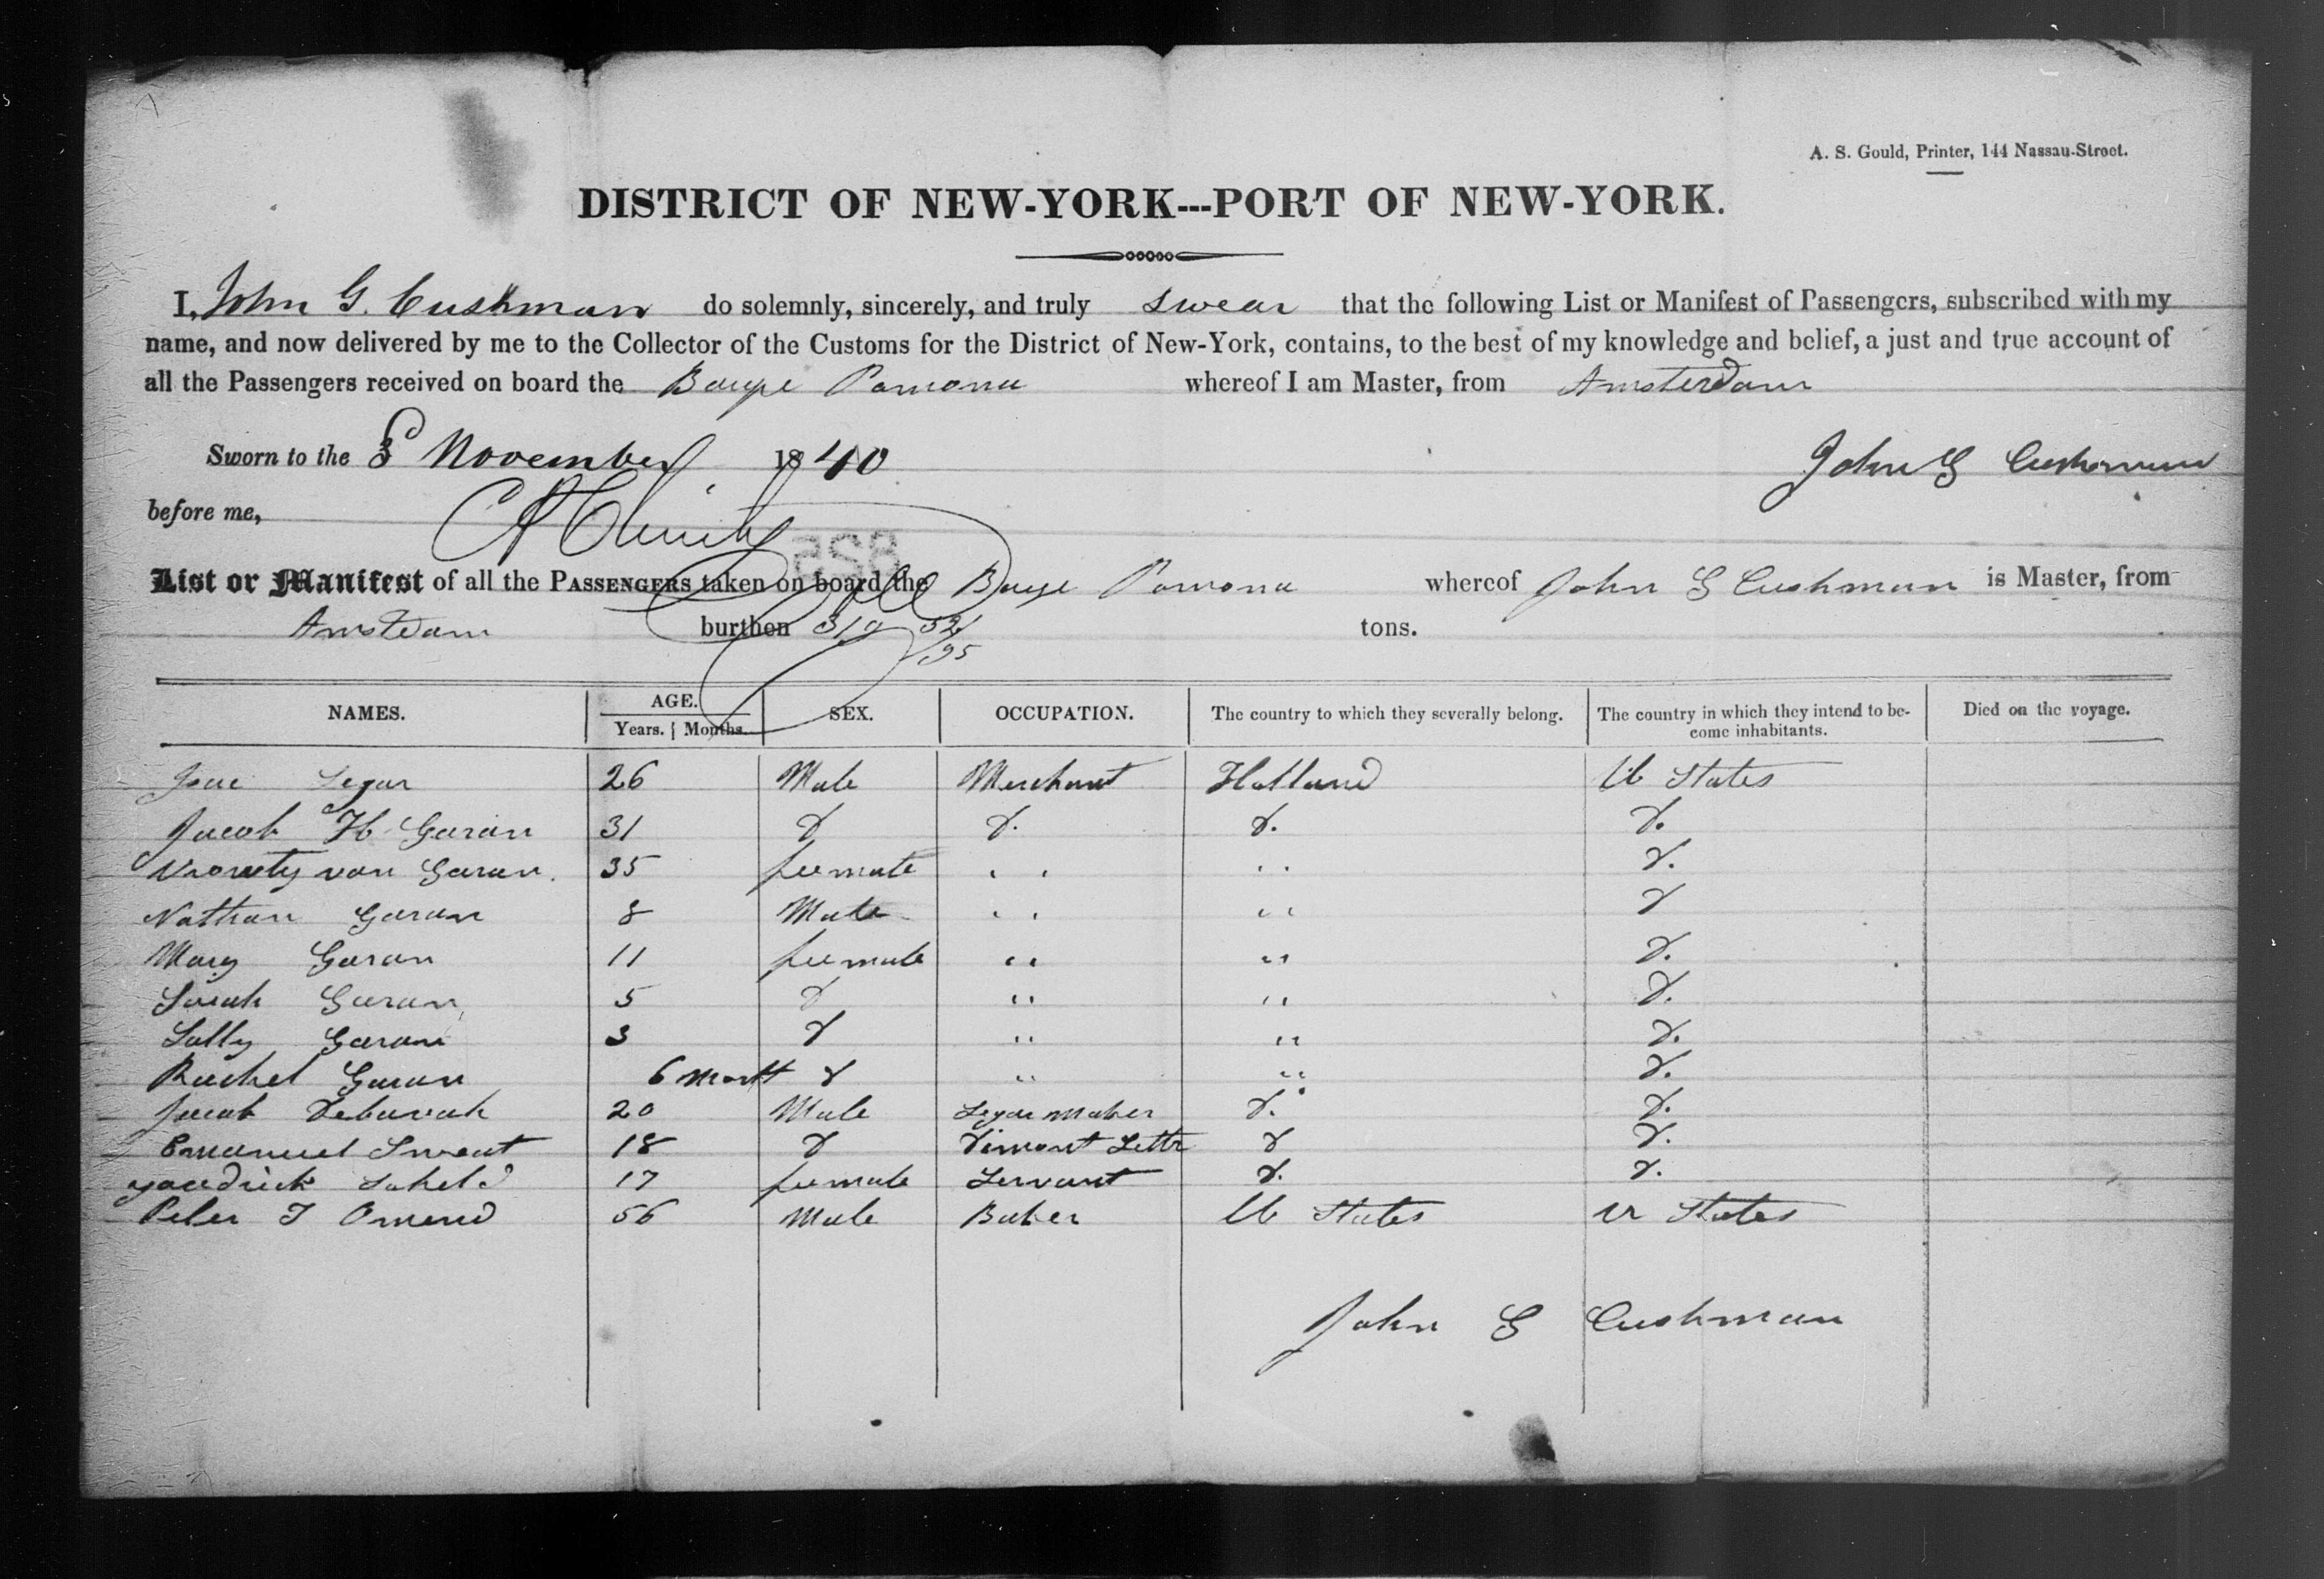 A. S. Gould, Printer, 144 Nassau-Street.
DISTRICT OF NEW-YORK---PORT OF NEW-YORK.
I, John G. Cushman do solemnly, sincerely, and truly swear that the following List or Manifest of Passengers, subscribed with my
name, and now delivered by me to the Collector of the Customs for the District of New-York, contains, to the best of my knowledge and belief, a just and true account of
all the Passengers received on board the Barge Pomona whereof I am Master, from Amsterdam
Sworn to the 3d November 1840 John G Cushman
before me,
List or Manifest of all the PASSENGERS taken on board the Barge Pomona whereof John G Cushman is Master, from
Amstdam burthen 319 52/95 tons.
NAMES. AGE. SEX. OCCUPATION. The country to which they severally belong. The country in which they intend to be- Died on the voyage.
Years. Months. come inhabitants.
Isac Segar 26 Male Merchant Holland U States
Jacob H Garan 31 D D. D. D.
van Garan. 35 feemale " " D.
Nathan Garan 8 Male " " D
Mary Garan 11 feemale " " D.
Sarah Garan 5 D " " D.
Sally Garan 3 D " " D.
Rachel Garan 6 Month D " " D.
Jacob Debarah 20 Male Segar Maker D. D.
Emanuel Sweat 18 D Dimont Settr D D.
17 feemale Servant D. D.
Peter T Omend 56 Male Baker U States U States
John G Cushman